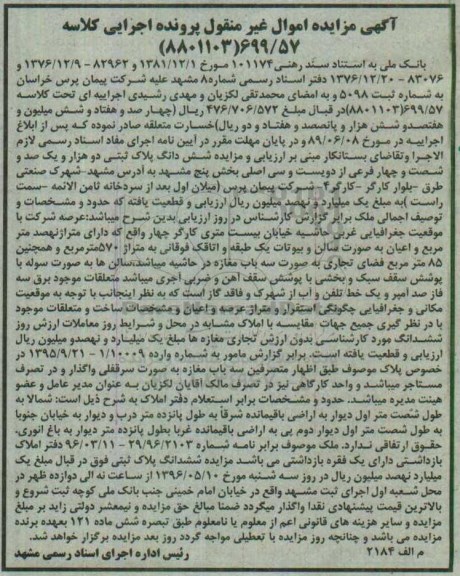 آگهی مزایده اموال غیر منقول پرونده اجرایی کلاسه
۶۹۹/۵۷(۸۸۰۱۱۰۳)
بانک ملی به استناد سند رهنی۱۰۱۱۷۴ مورخ ۱۳۸۱/۱۲/۱ و ۸۲۹۶۲ - ۱۳۷۶/۱۲/۹ و
۸۳۰۷۶ - ۱۳۷۶/۱۲/۲۰ دفتر اسناد رسمی شماره۸ مشهد علیه شرکت پیمان پرس خراسان
به شماره ثبت ۵۰۹۸ و به امضای محمدتقی لکزیان و مهدی رشیدی اجراییه ای تحت کلاسه
۶۹۹/۵۷(۸۸۰۱۱۰۳)در قبال مبلغ ۴۷۶/۷۰۶/۵۷۲ ریال (چهار صد و هفتاد و شش میلیون و
هفتصدو شش هزار و پانصدو هفتاد و دو ریال)خسارت متعلقه صادر نموده که پس از ابلاغ
اجراییه در مورخ ۸۹/۰۶/۰۸ و در پایان مهلت مقرر در آیین نامه اجرای مفاد اسناد رسمی لازم
الاجرا و تقاضای بستانکار مبنی بر ارزیابی و مزایده شش دانگ پلاک ثبتی دو هزار و یک صد و
شصت و چهار فرعی از دویست و سی اصلی بخش پنج مشهد به آدرس مشهد-شهرک صنعتی
طرق -بلوار کارگر -کارگر۴- شرکت پیمان پرس (میلان اول بعد از سردخانه ثامن الائمه -سمت
راست )به مبلغ یک میلیاردو نهصد میلیون ریال ارزیابی و قطعیت یافته که حدود و مشخصات و
توصیف اجمالی ملک برابر گزارش کارشناس در روز ارزیابی بدین شرح میباشد:عرصه شرکت با
موقعیت جغرافیایی غربی حاشیه خیابان بیست متری کارگر چهار واقع که دارای متراژنهصد متر
مربع و اعیان به صورت سالن و بیوتات یک طبقه و اتاقک فوقانی به متراژ ۵۷۰مترمربع و همچنین
۸۵ متر مربع فضای تجاری به صورت سه باب مغازه در حاشیه میباشد.سالن ها به صورت سوله با
پوشش سقف سبک و بخشی با پوشش سقف آهن و ضربی آجری میباشد متعلقات موجود برق سه
فاز صد آمپر و یک خط تلفن و آب از شهرک و فاقد گاز است که به نظر اینجانب با توجه به موقعیت
مکانی و جغرافیایی چگونگی استقرار و متراژ عرصه و اعیان و مشخصات ساخت و متعلقات موجود
با در نظر گیری جمیع جهات مقایسه با املاک مشابه در محل و شرایط روز معاملات ارزش روز
ششدانگ مورد کارشناسی بدون ارزش تجاری مغازه ها مبلغ یک میلیارد و نهصدو میلیون ریال
ارزیابی و قطعیت یافته است. برابر گزارش مامور به شماره وارده ۱/۱۰۰۰۹ - ۱۳۹۵/۹/۲۱ در
خصوص پلاک موصوف طبق اظهار متصرفین سه باب مغازه به صورت سرقفلی واگذار و در تصرف
مستاجر میباشد و واحد کارگاهی نیز در تصرف مالک آقایان لکزیان به عنوان مدیر عامل و عضو
هیئت مدیره میباشد. حدود و مشخصات برابر استعلام دفتر املاک به شرح ذیل است: شمالا به
طول شصت متر اول دیوار به اراضی باقیمانده شرقا به طول پانزده متر درب و دیوار به خیابان جنوبا
به طول شصت متر اول دیوار دوم پی به اراضی باقیمانده غربا بطول پانزده متر دیوار به باغ انوری.
حقوق ارتفاقی ندارد. ملک موصوف برابر نامه شماره ۲۹/۹۶/۲۱۰۳ - ۹۶/۰۳/۱۱ دفتر املاک
بازداشتی دارای یک فقره بازداشتی می باشد مزایده ششدانگ پلاک ثبتی فوق در قبال مبلغ یک
میلیارد نهصد میلیون ریال در روز سه شنبه مورخ ۱۳۹۶/۰۵/۱۰ از ساعت نه الی دوازده ظهر در
محل شعبه اول اجرای ثبت مشهد واقع در خیابان امام خمینی جنب بانک ملی کوچه ثبت شروع و
بالاترین قیمت پیشنهادی نقدا واگذار میگردد ضمنا مبالغ حق مزایده و نیمعشر دولتی زاید بر مبلغ
مزایده و سایر هزینه های قانونی اعم از معلوم یا نامعلوم طبق تبصره شش ماده ۱۲۱ بعهده برنده
مزایده می باشد و چنانچه روز مزایده با تعطیلی مواجه گردد روز بعد مزایده برگزار خواهد شد.
م الف ۲۱۸۴ رئیس اداره اجرای اسناد رسمی مشهد